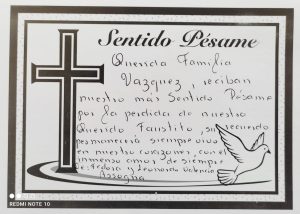 Sentido Pésame
Querida Familia
Vazquez, reciban
nuestro más Sentido Pésame
por la perdida de nuestro
Querido Faustito, su recuerdo
permanecerá siempre vivo
en nuestro corazones, con el
inmenso amor de siempre
De: Fedora y Leonardo Valencia
REDMI NOTE 10